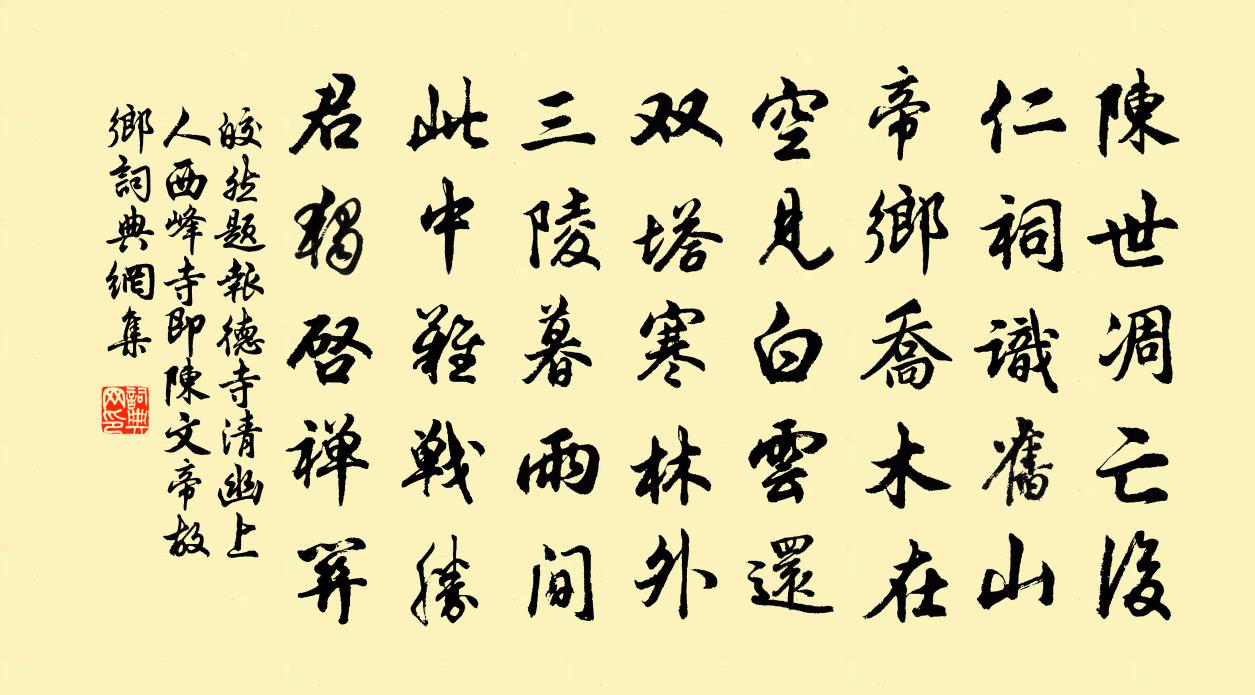 陳世凋亡後
仁祠識舊山
帝鄉喬木在
空見白雲還
双塔寒林外
三陵暮雨間
此中難戦勝
君獨啓禅関
皎然題報德寺清幽上
人西峰寺即陳文帝故
鄉詞典網集
詞典网印